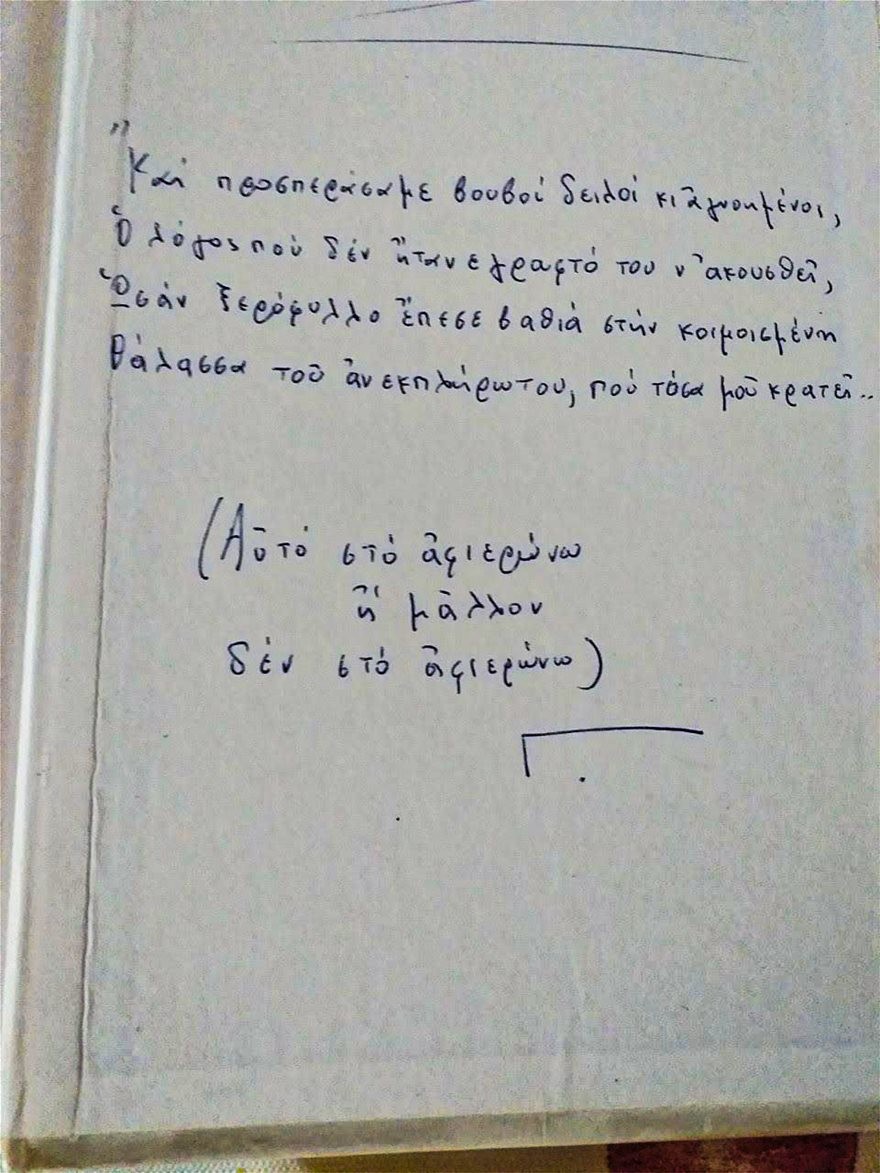 "
Καί προσπεράσαμε βουβοί δειλοί κι ἀγνοημένοι,
Ὁ λόγος πού δέν ἤτανε γραφτό του ν' ἀκουσθεῖ,
Ὡσάν ξερόφυλλο ἔπεσε βαθιά στήν κοιμοισμένη
θάλασσα τοῦ ἀνεκπλήρωτου, πού τόσα μοῦ κρατεῖ..
(Αὐτό στό ἀφιερώνω
ἤ μᾶλλον
δέν στό ἀφιερώνω)
Γ.